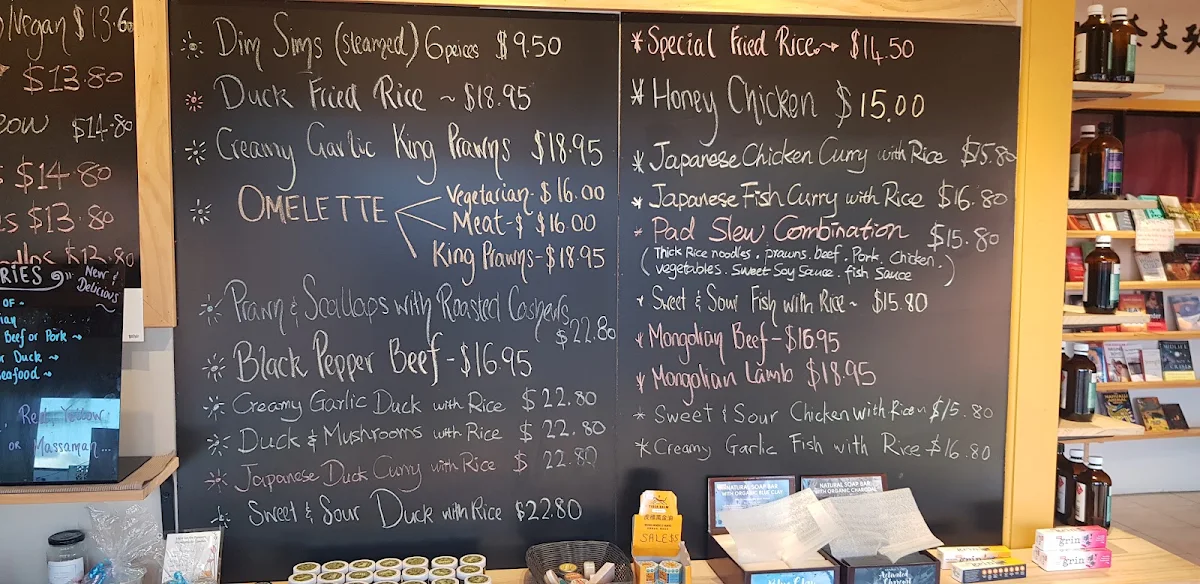 Vegan $13.60
$13.80
$14.80
$14.80
$13.80
$13.80
New &
Delicious
OF -
Beef or Pork
Duck
Red, Yellow
OR Massaman...
Dim Sims (steamed) 6 peices $9.50
Duck Fried Rice ~ $18.95
Creamy Garlic King Prawns $18.95
OMELETTE
Vegetarian-$16.00
Meat-$ $16.00
King Prawns-$18.95
Prawn & Scallops with Roasted Cashews
$22.80
Black Pepper Beef-$16.95
Creamy Garlic Duck with Rice $22.80
Duck & Mushrooms with Rice $22.80
Japanese Duck Curry with Rice $22.80
Sweet & Sour Duck with Rice $22.80
Special Fried Rice $14.50
Honey Chicken $15.00
Japanese Chicken Curry with Rice $15.80
Japanese Fish Curry with Rice $16.80
Pad Siew Combination $15.80
(Thick Rice noodles. prawns. beef. Pork. Chicken.
vegetables. Sweet Soy Sauce. fish Sauce)
Sweet & Sour Fish with Rice ~ $15.80
Mongolian Beef-$16.95
Mongolian Lamb $18.95
Sweet & Sour Chicken with Rice $15.80
Creamy Garlic Fish with Rice $16.80
夫
SALE $5
NATURAL SOAP BAR
WITH ORGANIC BLUE CLAY
NATURAL SOAP BAR
WITH ORGANIC CHARCOAL
Blue Clay
Activated Charcoal
grin
grin